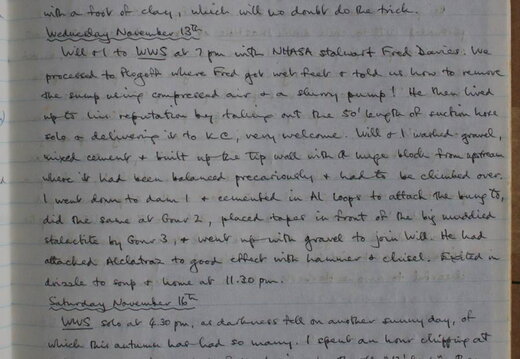 with a foot of clay, which will no doubt do the trick.
Wednesday November 13th
Will & I to WWS at 7 pm with NHASA stalwart Fred Davies. We
processed to Plogoff where Fred got wet feet & told us how to remove
the sump using compressed air & a slurry pump! He then lived
up to his reputation by taking out the 50' length of suction hose
solo & delivering it to KC, very welcome. Will & I washed gravel,
mixed cement & built up the top wall with a huge block from upstream
where it had been balanced precariously & had to be climbed over.
I went down to dam 1 & cemented in Al loops to attach the bung to,
did the same at Gour 2, placed tapes in front of the big muddied
stalactite by Gour 3, & went up with gravel to join Will. He had
attacked Alclatraz to good effect with hammer & chisel. Exited in
drizzle to soup & home at 11.30 pm.
Saturday November 16th
WWS solo at 4.30 pm, as darkness fell on another sunny day, of
which this autumn has had so many. I spent an hour chipping at